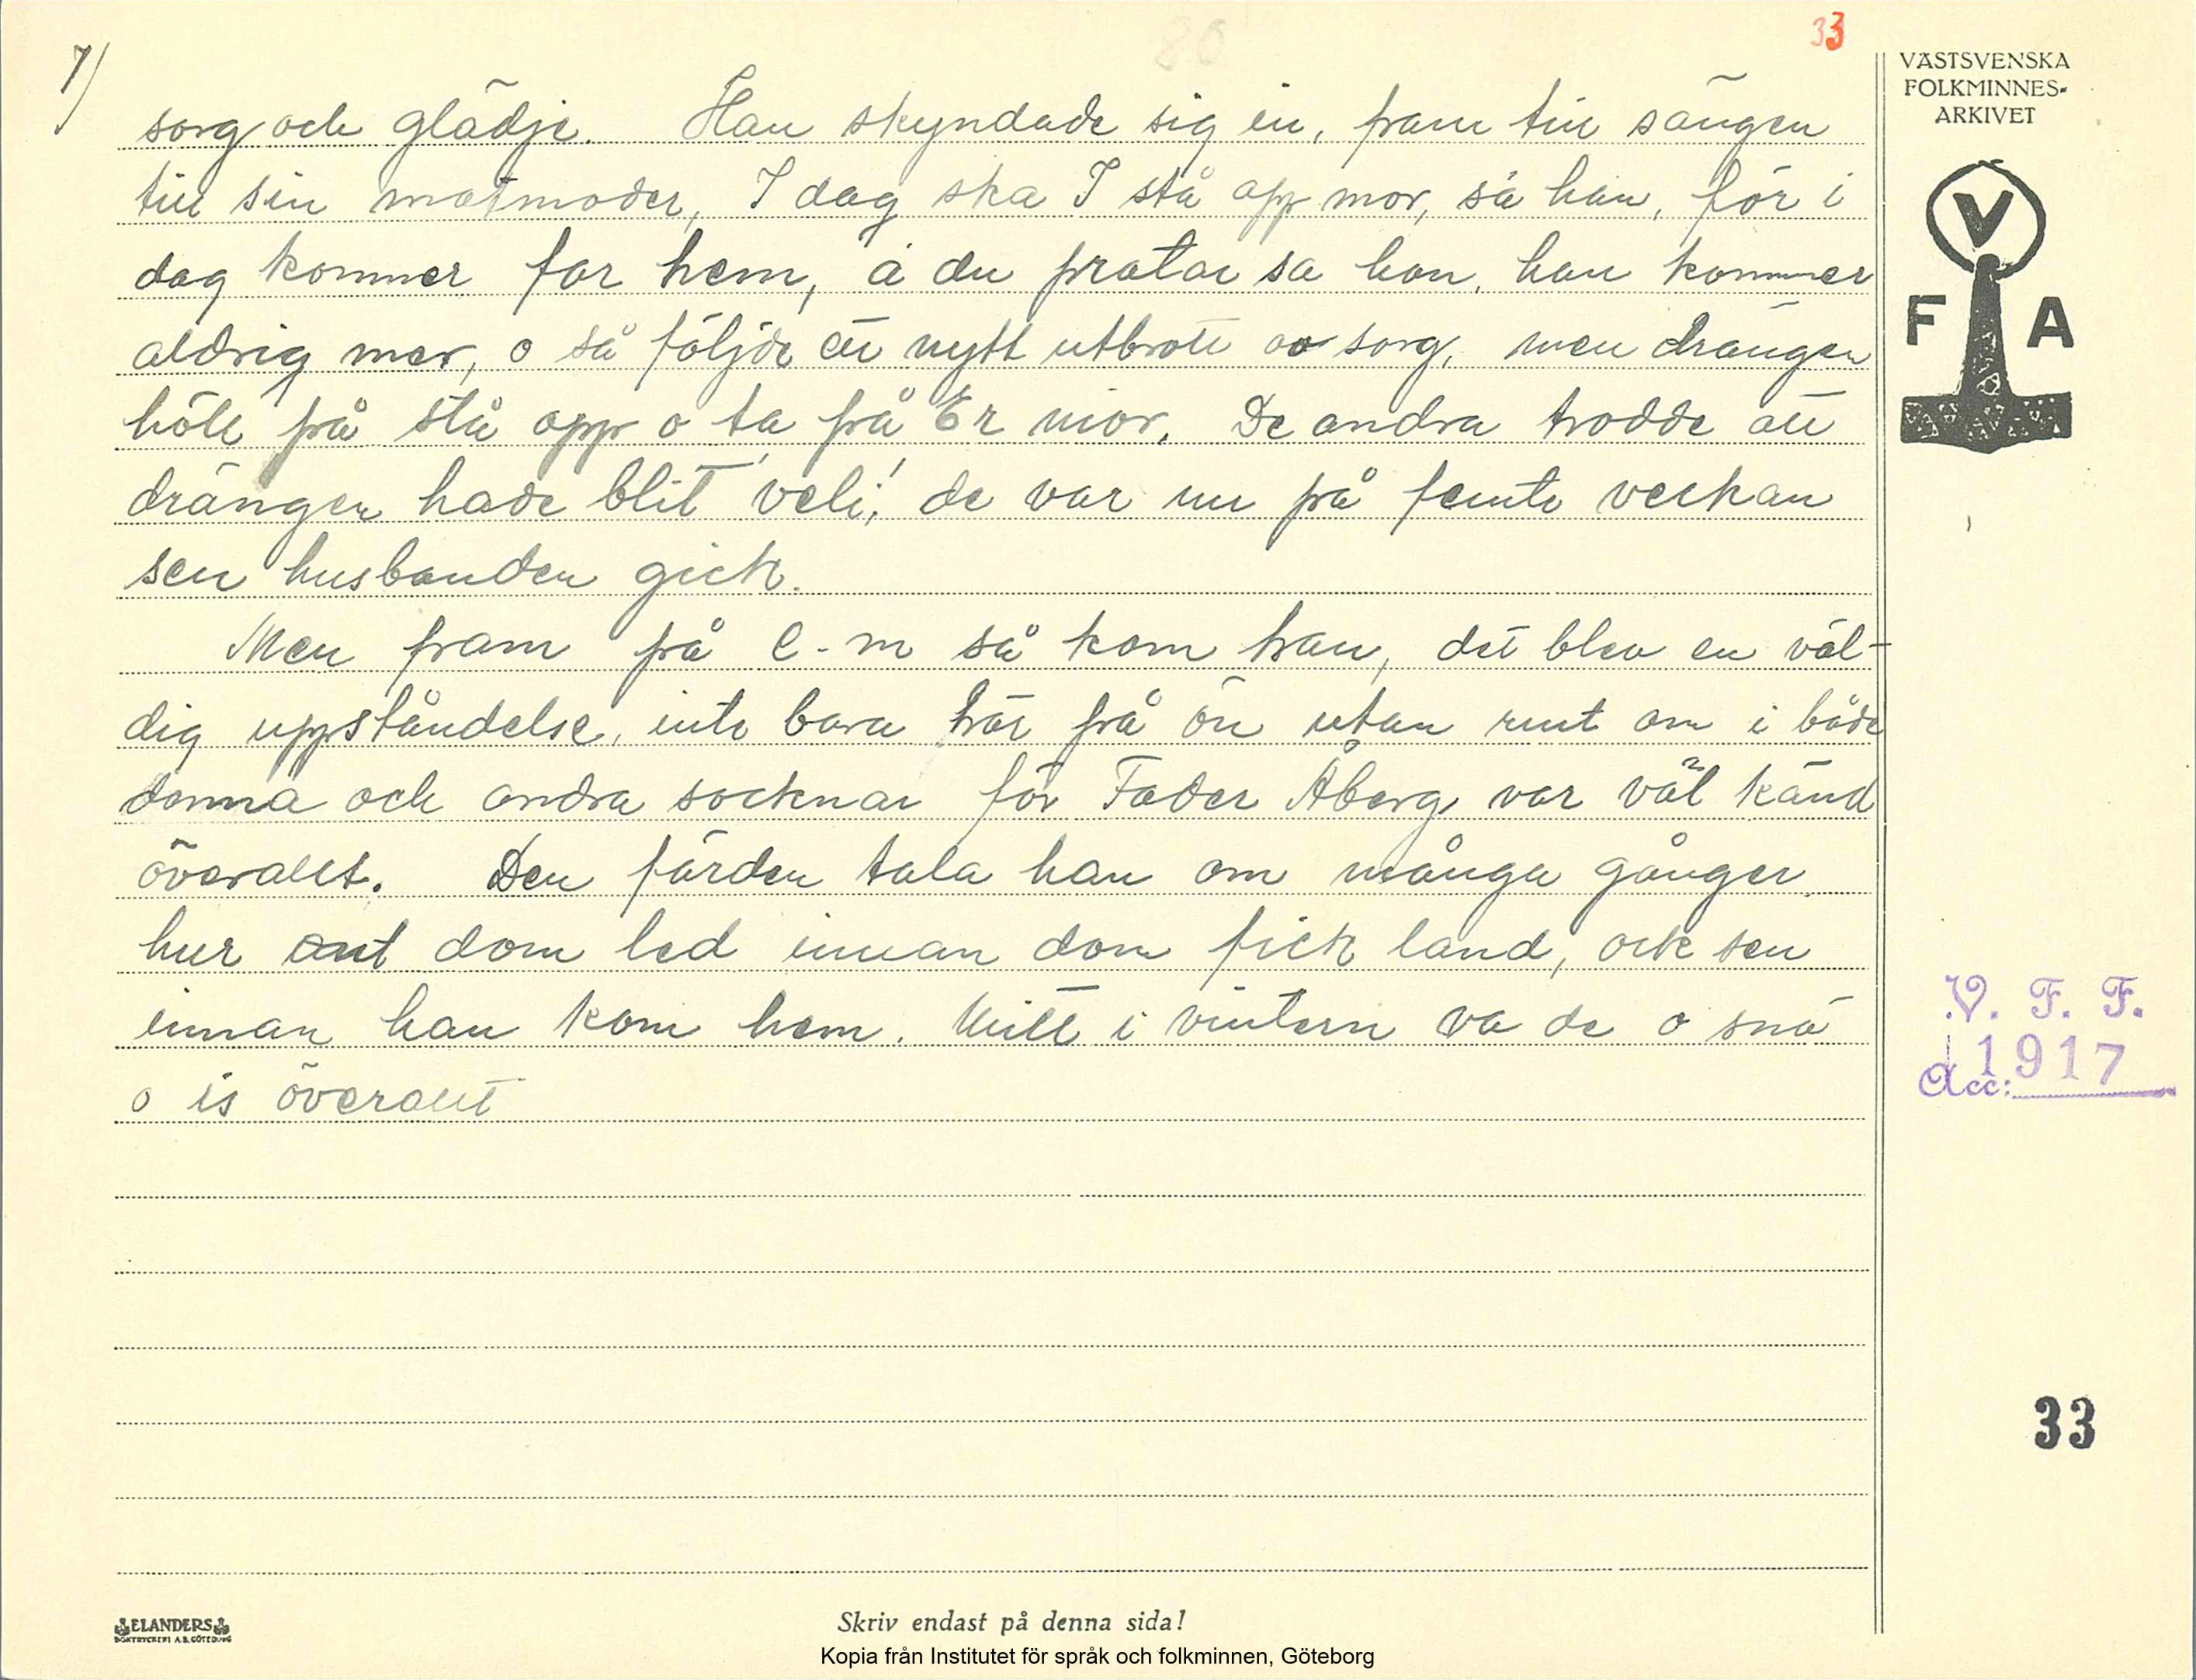 7/
33
sorg och glädje. Han skyndade sig in, fram till sängen
till sin matmoder, I dag ska I stå opp mor, sa han, för i
dag kommer far hem, å du pratar sa hon, han kommer
aldrig mer, o så följde ett nytt utbrott av sorg, men drängen
höll på stå opp o ta på Er mor. De andra trodde att
drängen hade blit veli, de var nu på femte veckan
sen husbonden gick.
Men fram på e-m så kom han, det blev en väl-
dig uppståndelse, inte bara här på ön utan runt om i både
denna och andra socknar för Fader Åberg var väl känd
överallt. Den färden tala han om många gånger.
hur ont dom led innan dom fick land, ock sen
innan han kom hem. Mitt i vintern va de o snö
o is överallt
VÄSTSVENSKA
FOLKMINNES-
ARKIVET
V
F A
V. F. F.
1917
Acc:
33
ELANDERS
BOKTRYCKERI A.B. GÖTEBORG
Skriv endast på denna sida!
Kopia från Institutet för språk och folkminnen, Göteborg